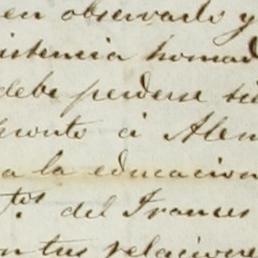 en observado y
istencia homad
debe perderse su
pronto á Alem
a la educacion
tos. del Frances
on tus relacione